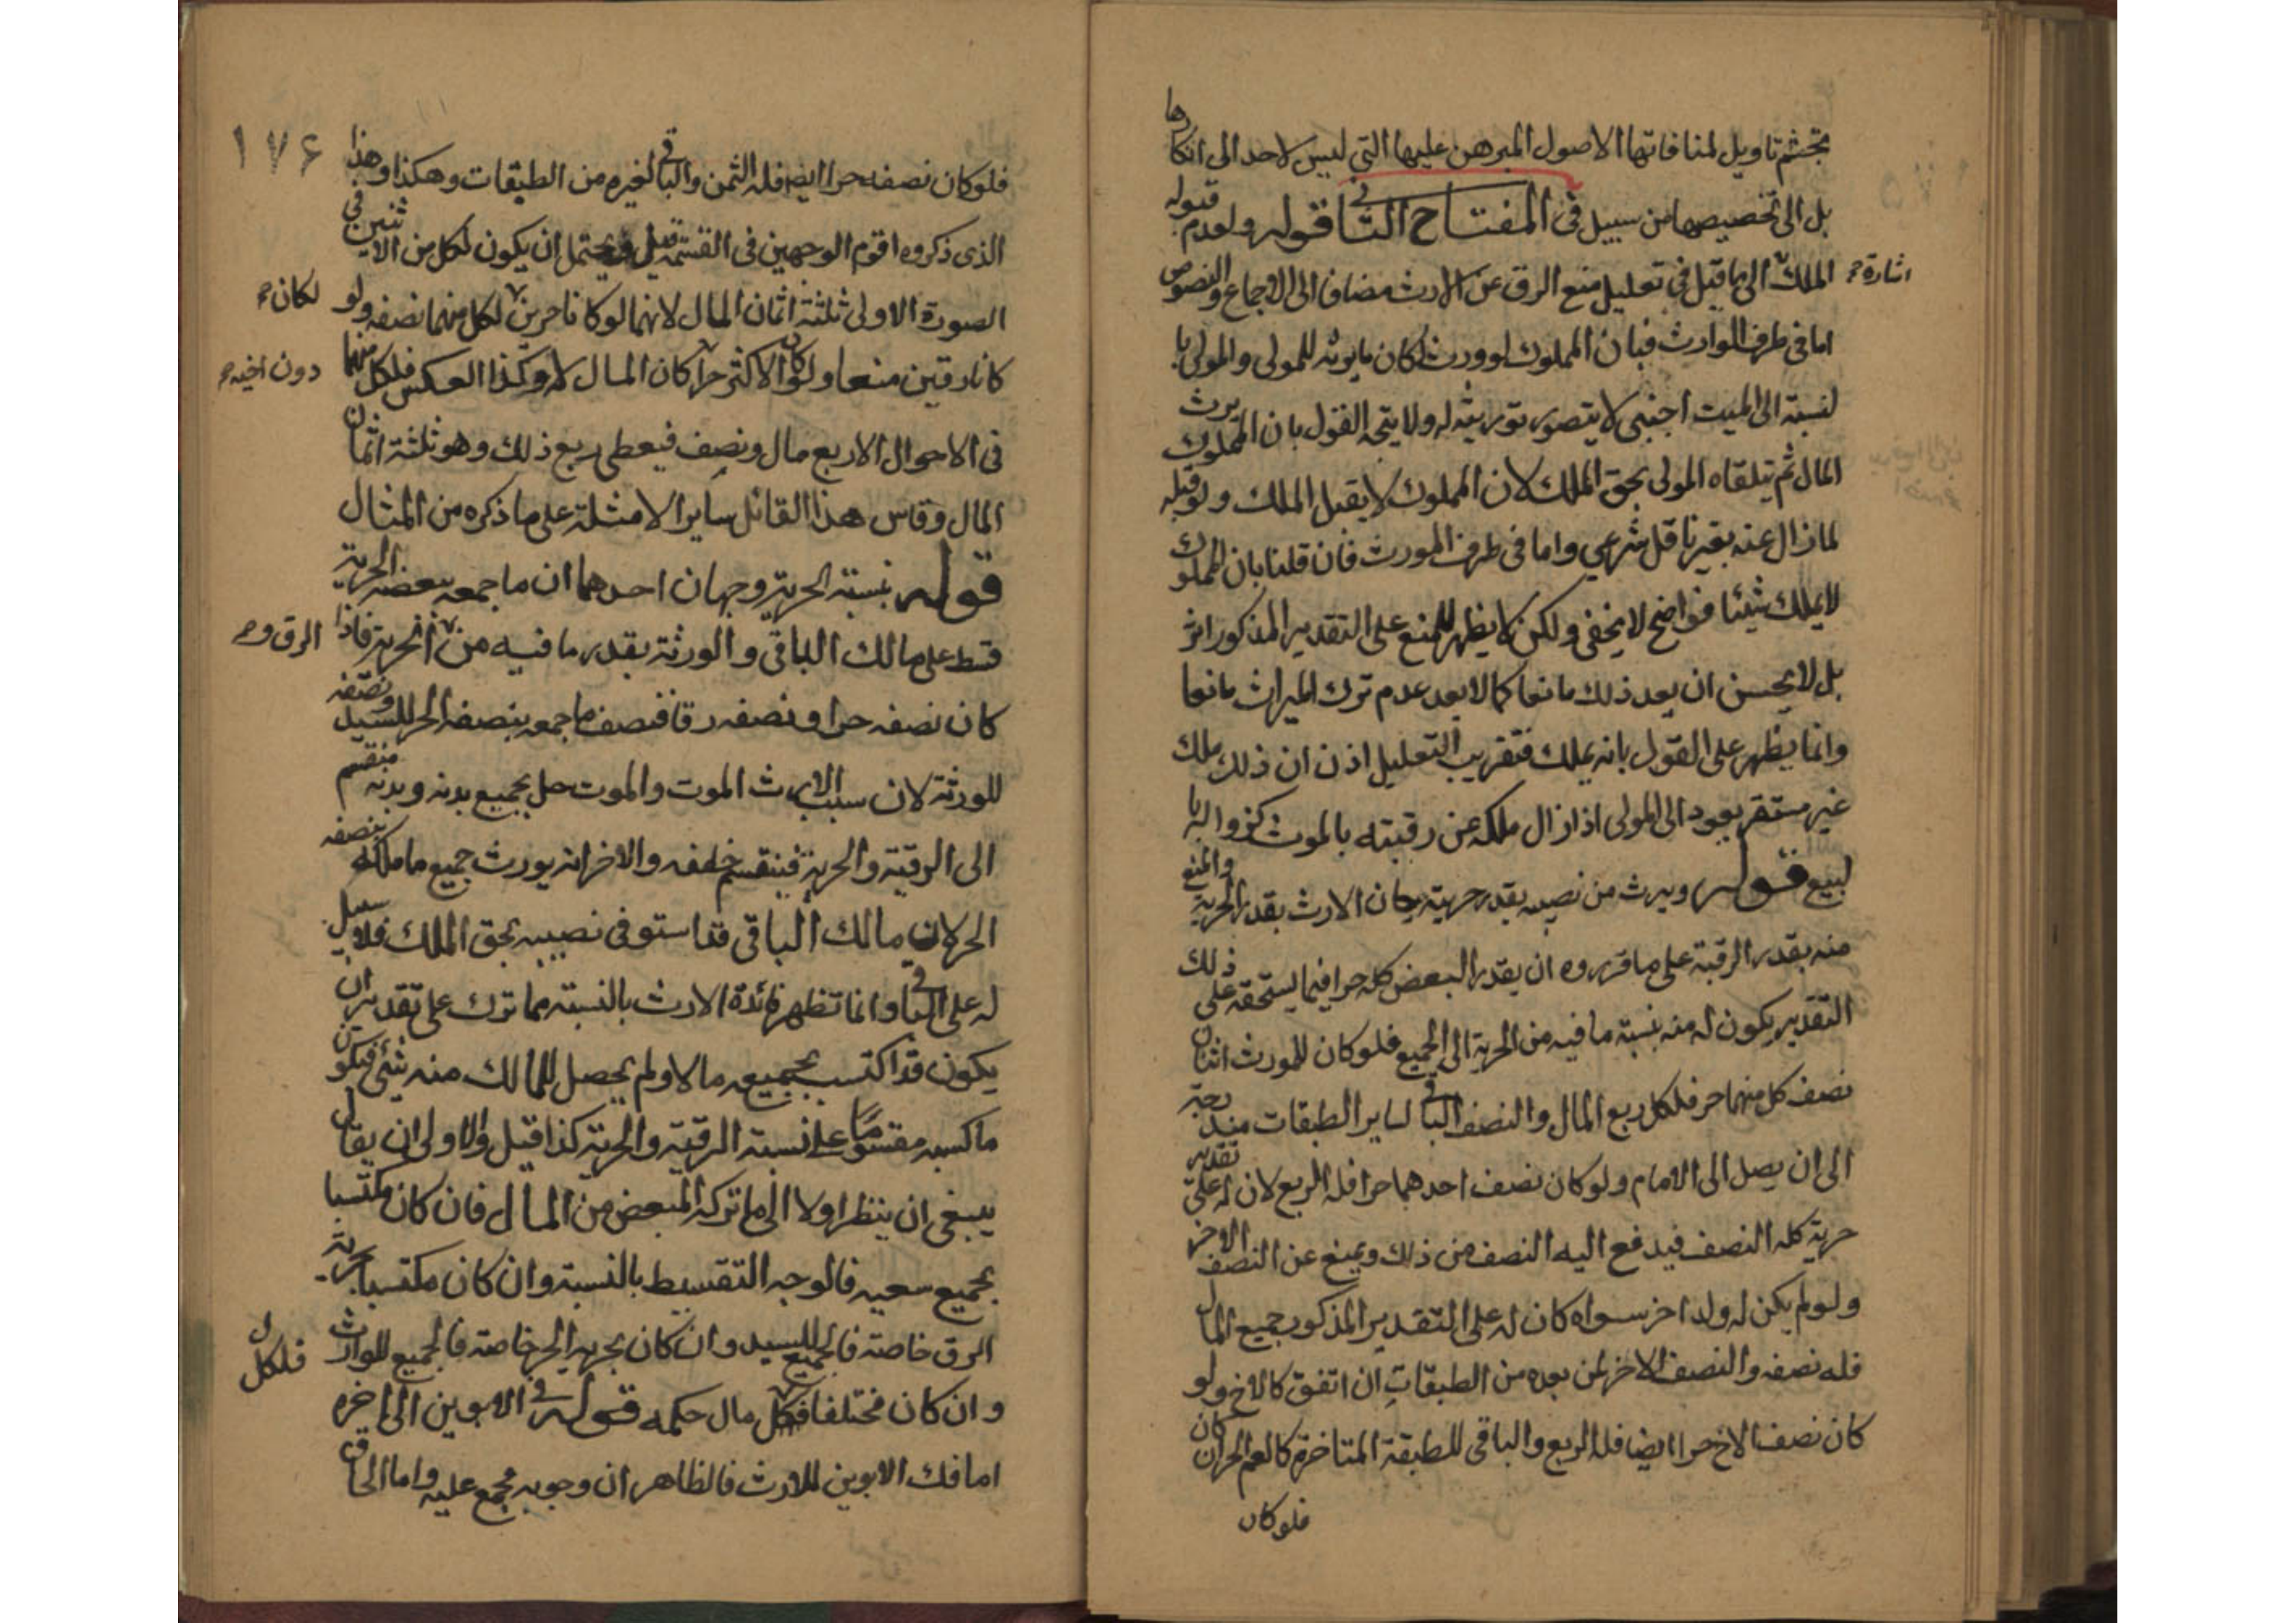 تجشم تاويل لمنافاتها الاصول المبرهن عليها التي ليس لاحد الى انكارها
بل الى تخصيصها من سبيل في المفتاح الثاني قوله ولعدم قبوله
الملك الى ما قيل في تعليل منع الرق عن الارث مضافا الى الاجماع والنصوص
اشارة
اما في طرف الوارث فبان المملوك لو ورث لكان ما يرثه للمولى والمولى با
لنسبة الى الميت اجنبي لا يتصور توريثه له ولا يتجه القول بان المملوك يرث
المال ثم يتلقاه المولى بحق الملك لان المملوك لا يقبل الملك ولو قبله
لما زال عنه بغير ناقل شرعي واما في طرف المورث فان قلنا بان المملوك
لا يملك شيئا فواضح لا يخفى ولكن لا يظهر للمنع على التقدير المذكور اثر
بل لا يحسن ان يعد ذلك مانعا كما لا يعد عدم ترك الميراث مانعا
وانما يظهر على القول بانه يملك فتقريب التعليل اذن ان ذلك ملك
غير مستقر يعود الى المولى اذا زال ملكه عن رقبته بالموت كزواله با
لبيع قوله ويرث من نصيبه بقدر حريته كان الارث بقدر الحرية والمنع
منه بقدر الرقية على ما قرروه ان يقدر البعض كله حرا فما يستحقه على ذلك
التقدير يكون له منه بنسبة ما فيه من الحرية الى الجميع فلو كان للمورث ابنان
نصف كل منهما حر فلكل ربع المال والنصف الباقي لساير الطبقات مندرجة
الى ان يصل الى الامام ولو كان نصف احدهما حرا فله الربع لان له على تقدير
حرية كله النصف فيدفع اليه النصف من ذلك ويمنع عن النصف الاخر
ولو لم يكن له ولد اخر سواه كان له على التقدير المذكور جميع المال
فله نصفه والنصف الاخر لمن بعده من الطبقات ان اتفق كالاخ ولو
كان نصف الاخ حرا ايضا فله الربع والباقي للطبقة المتاخرة كالعم الحر ان كان
فلو كان
١٧٦
فلو كان نصفه حرا ايضا فله الثمن والباقي لغيره من الطبقات وهكذا وهذا
الذي ذكروه اقوم الوجهين في القسمة قيل ويحتمل ان يكون لكل من الاثنين في
الصورة الاولى ثلثة اثمان المال لانهما لو كانا حرين لكل منهما نصفه ولو
لكان
كانا رقين منعا ولو كان الاكثر حرا كان المال له وكذا العكس فلكل منهما
دون اخيه
في الاحوال الاربع مال ونصف فيعطى ربع ذلك وهو ثلثة اثمان
المال وقاس هذا القائل ساير الامثلة على ما ذكره من المثال
قوله بنسبة الحرية وجهان احدهما ان ما جمعه ببعضه الحرية
قسط على مالك الباقي والورثة بقدر ما فيه من الحرية فاذا
الرق و
كان نصفه حرا ونصفه رقا فنصف ما جمعه بنصفه الحر للسيد ونصفه
للورثة لان سبب الارث الموت والموت حل بجميع بدنه وبدنه منقسم
الى الرقية والحرية فينقسم خلفه والاخر انه يورث جميع ما ملكه بنصفه
الحر لان مالك الباقي قد استوفى نصيبه بحق الملك فلا سبيل
له على الباقي وانما تظهر فائدة الارث بالنسبة مما ترك على تقدير ان
يكون قد اكتسب بجميعه مالا ولم يحصل للمالك منه شئ فيكون
ما كسبه مقسوما على نسبة الرقية والحرية كذا قيل والاولى ان يقال
ينبغي ان ينظر اولا الى ما تركه المبعض من المال فان كان مكتسبا
بجميع سعيه فالوجه التقسيط بالنسبة وان كان مكتسبا بجزئه
الرق خاصة فالجميع للسيد وان كان بجزئه الحر خاصة فالجميع للوارث
وان كان مختلفا فكل مال حكمه قوله في الابوين الى اخره
فلكل
اما فك الابوين للارث فالظاهر ان وجوبه مجمع عليه واما الحاق